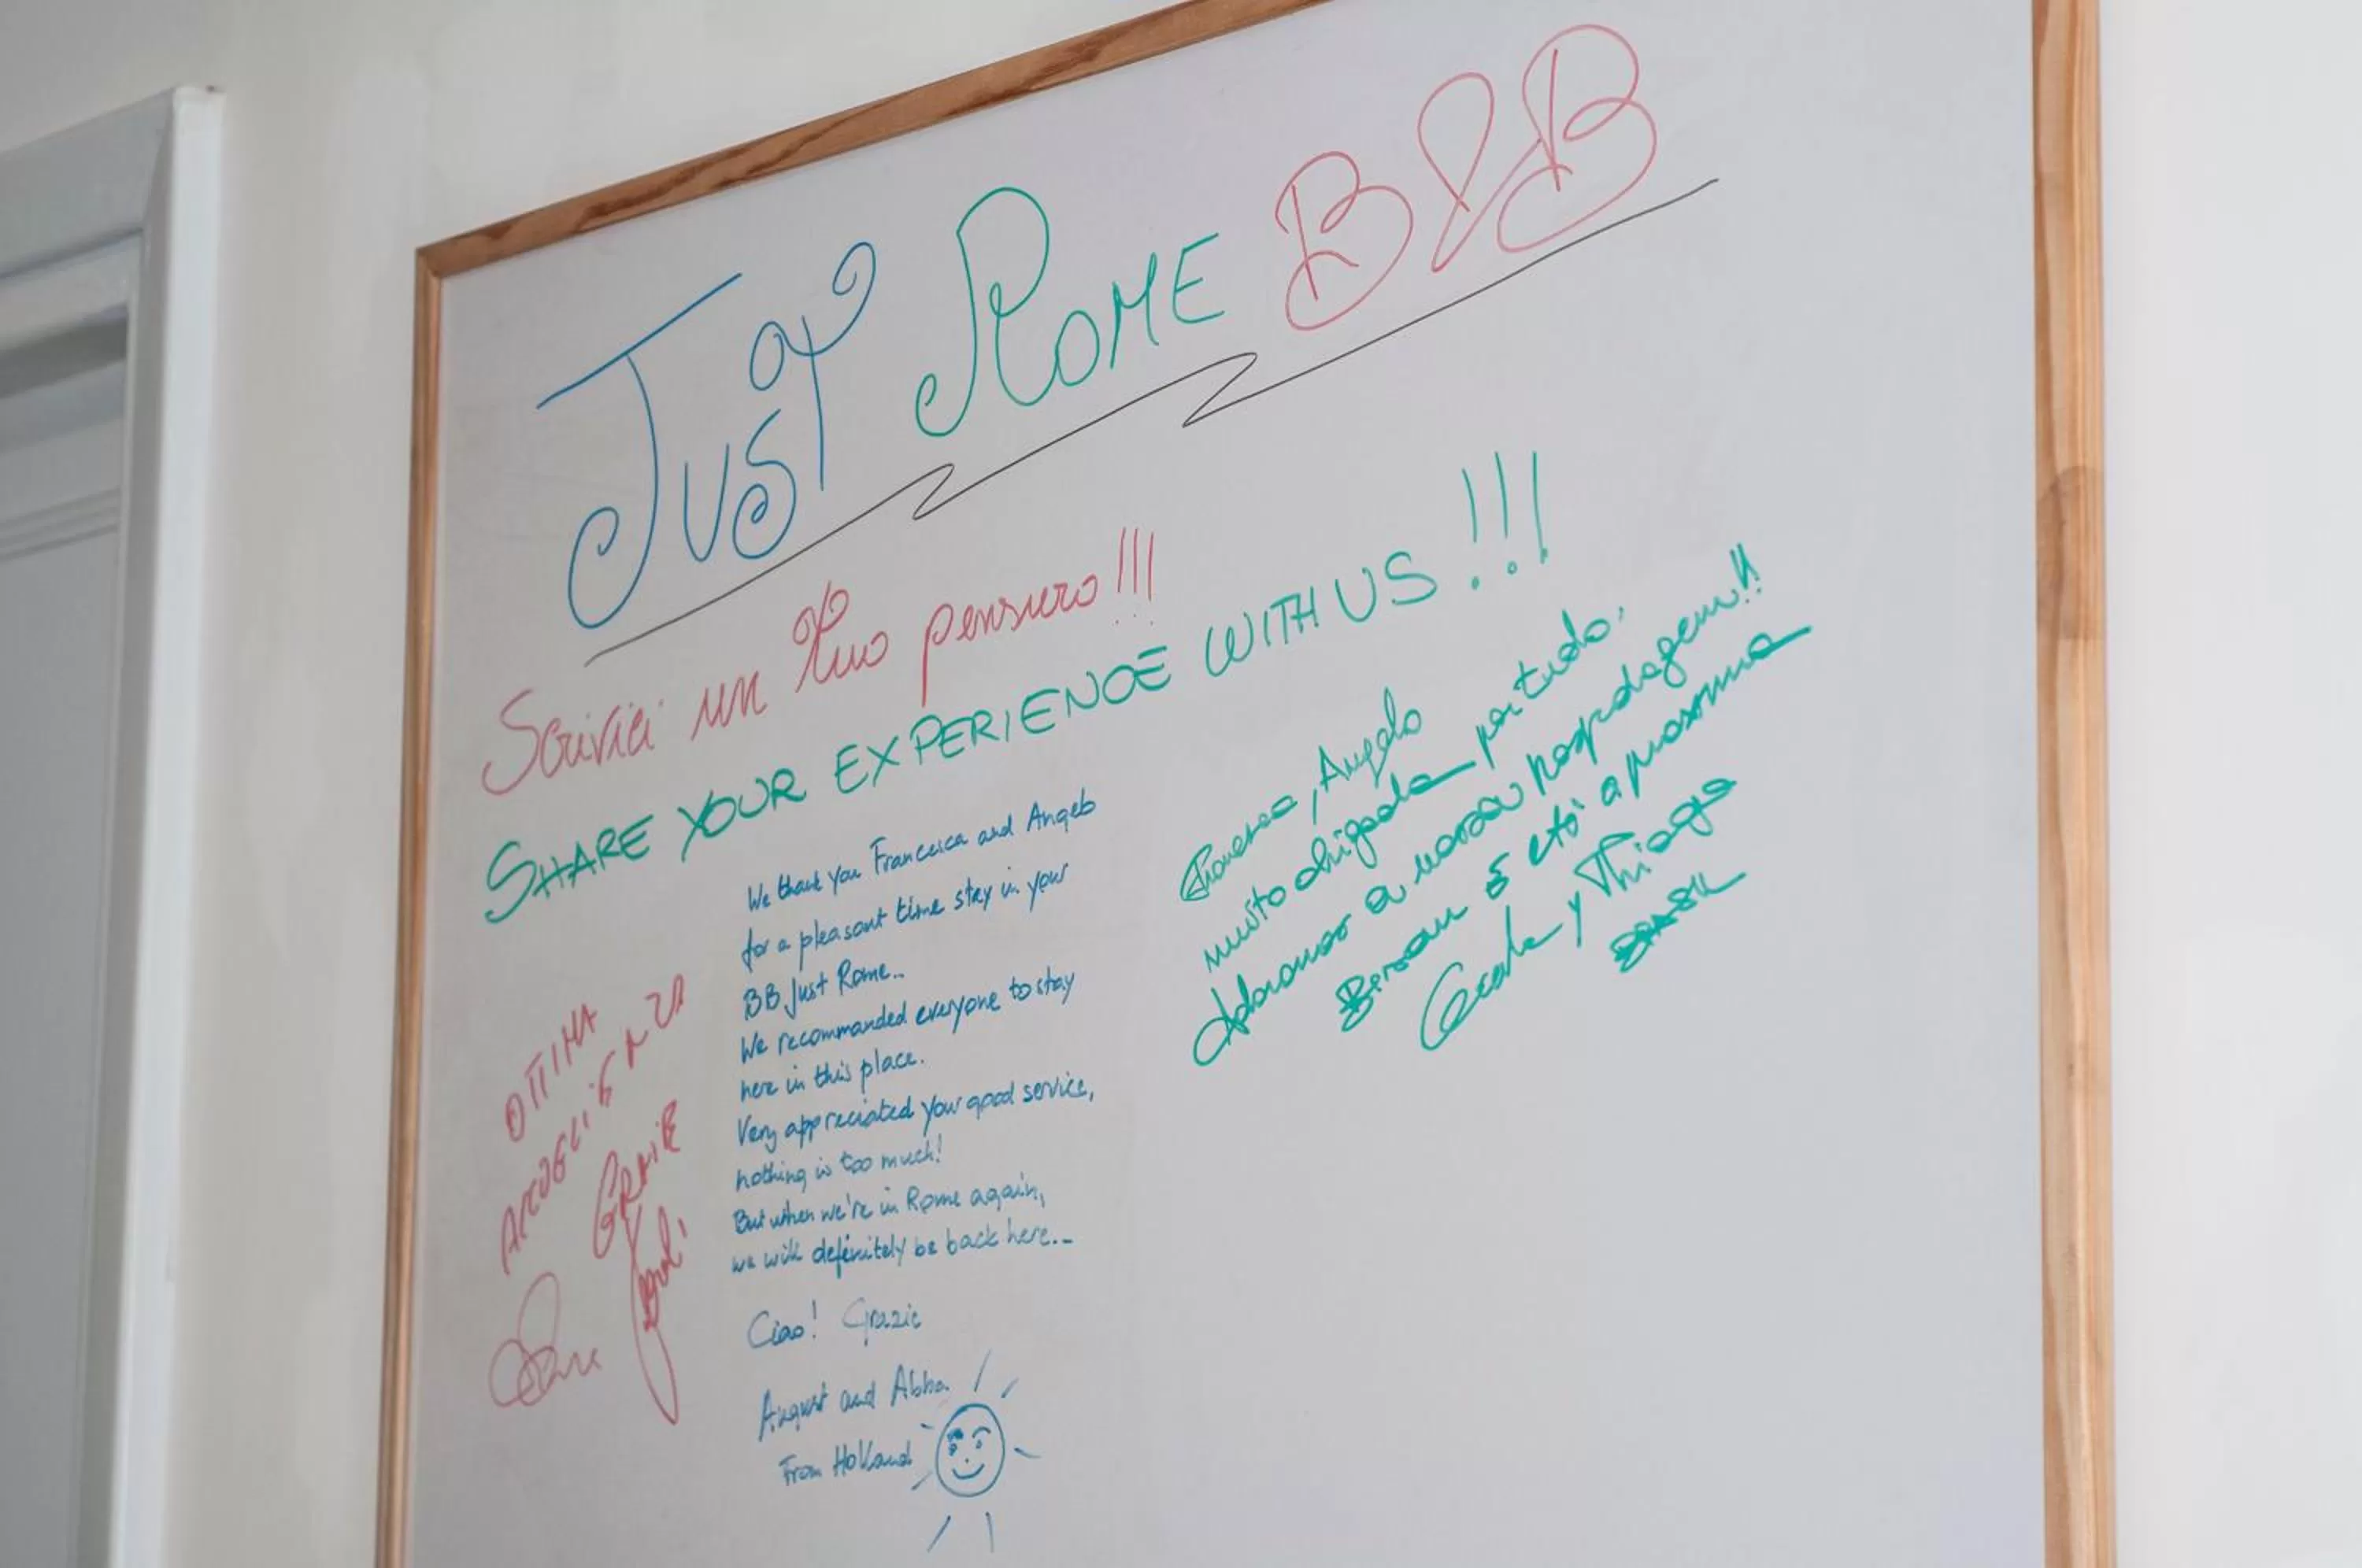 Just Rome B&B
Scrivici un tuo pensiero!!!
SHARE YOUR EXPERIENCE WITH US!!!
OTTIMA
ACCOGLIENZA
GRAZIE
We thank you Francesca and Angelo
for a pleasant time stay in your
BB Just Rome..
We recommanded everyone to stay
here in this place.
Very appreciated your good service,
nothing is too much!
But when we're in Rome again,
we will definitely be back here...
Ciao! Grazie
August and Abha
From Holland
Angelo
muito obrigada por tudo,
Adoramos a nossa hospedagem!!
até a proxima
y Thiago
BRASIL